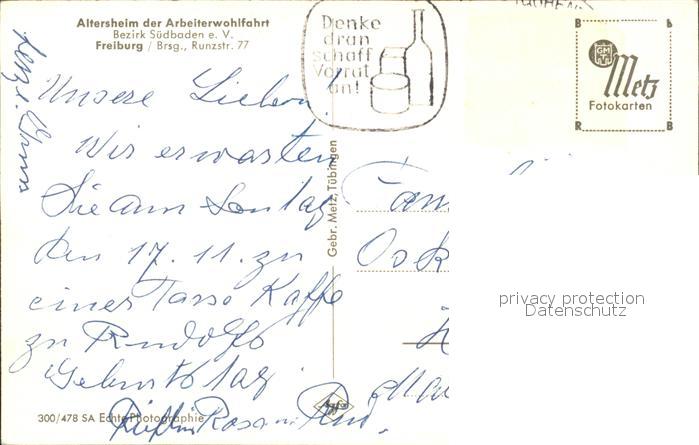 Altersheim der Arbeiterwohlfahrt
Bezirk Südbaden e. V.
Freiburg / Brsg., Runzstr. 77
Denke
dran
schaff
Vorrat
an!
B B
GMT
Metz
Fotokarten
R B
Unsere Lieben!
Wir erwarten
Sie am Sontag
den 17. 11. zu
einer Tasse Kaffe
zu Rudolfs
Geburtstag.
Gebr. Metz, Tübingen
Fam
Osk
privacy protection
Datenschutz
300/478 SA Echte Photographie
Agfa